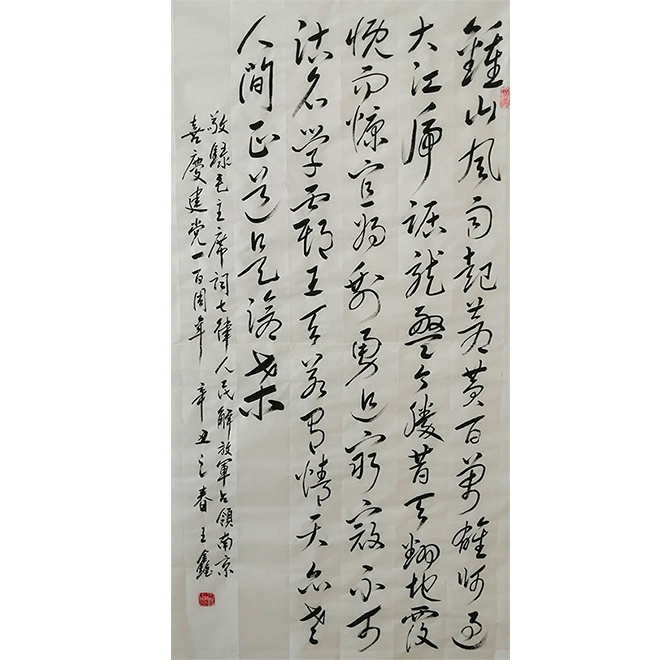 鍾山风雨起蒼黄百萬雄师过
大江虎踞龍盤今勝昔天翻地覆
慨而慷宜将剩勇追窮寇不可
沽名学霸王天若有情天亦老
人間正道是滄桑
敬録毛主席词七律人民解放軍占領南京
喜慶建党一百周年 辛丑之春 王鑫